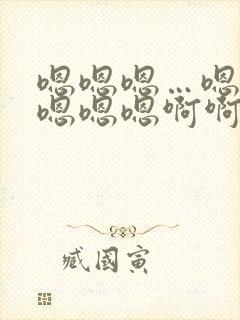 嗯嗯嗯…嗯
嗯嗯嗯啊啊
臧国寅